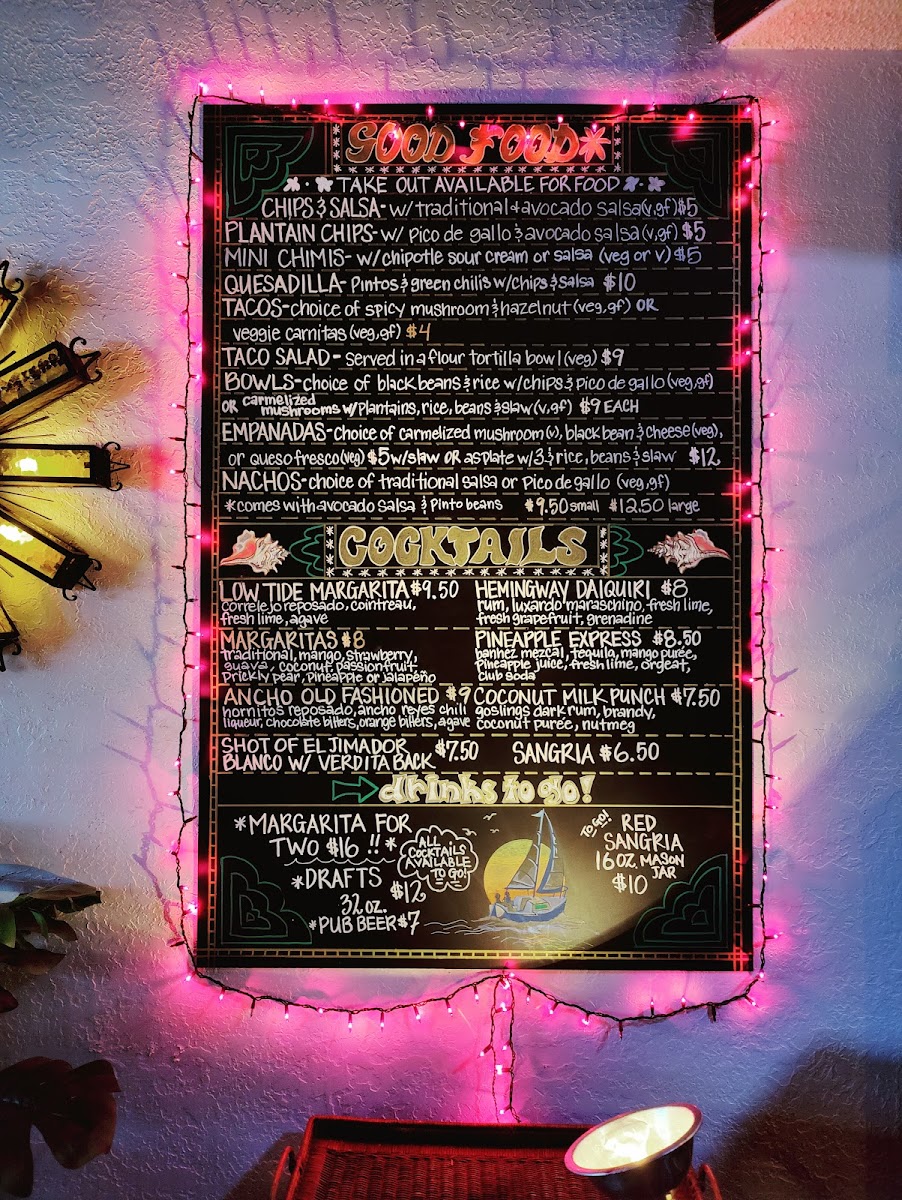 GOOD FOOD*
TAKE OUT AVAILABLE FOR FOOD
CHIPS & SALSA- w/ traditional + avocado salsa (v,gf) $5
PLANTAIN CHIPS- w/ Pico de gallo & avocado salsa (v,gf) $5
MINI CHIMIS- w/chipotle sour cream or salsa (veg or v) $5
QUESADILLA- Pintos & green chilis w/chips & salsa $10
TACOS-choice of spicy mushroom & hazelnut (veg,gf) OR
veggie carnitas (veg,gf) $4
TACO SALAD- served in a flour tortilla bowl (veg) $9
BOWLS-choice of black beans & rice w/chips & Pico de gallo (veg,gf)
OR carmelized mushrooms w/Plantains, rice, beans & slaw (v,gf) $9 EACH
EMPANADAS-choice of carmelized mushroom (v), black bean & cheese (veg),
or queso fresco (veg) $5 w/slaw OR as plate w/3 & rice, beans & slaw $12
NACHOS-choice of traditional salsa or Pico de gallo (veg,gf)
*comes with avocado salsa & Pinto beans $9.50 small $12.50 large
COCKTAILS
LOW TIDE MARGARITA $9.50
correlejo reposado, cointreau,
fresh lime, agave
HEMINGWAY DAIQUIRI $8
rum, luxardo maraschino, fresh lime,
fresh grapefruit, grenadine
MARGARITAS $8
traditional, mango, strawberry,
guava, coconut, passionfruit
Prickly pear, Pineapple or Jalapeño
PINEAPPLE EXPRESS $8.50
banhez mezcal, tequila, mango purée,
Pineapple juice, fresh lime, orgeat,
club soda
ANCHO OLD FASHIONED $9
hornitos reposado, ancho reyes chili
liqueur, chocolate bitters, orange bitters, agave
COCONUT MILK PUNCH $7.50
goslings dark rum, brandy,
coconut purée, nutmeg
SHOT OF EL JIMADOR
BLANCO W/ VERDITA BACK $7.50
SANGRIA $6.50
drinks to go!
*MARGARITA FOR
TWO $16 !! *
ALL
COCKTAILS
AVAILABLE
TO GO!
*DRAFTS
$12
32 oz.
*PUB BEER $7
TO GO!
RED
SANGRIA
16 OZ MASON
JAR
$10